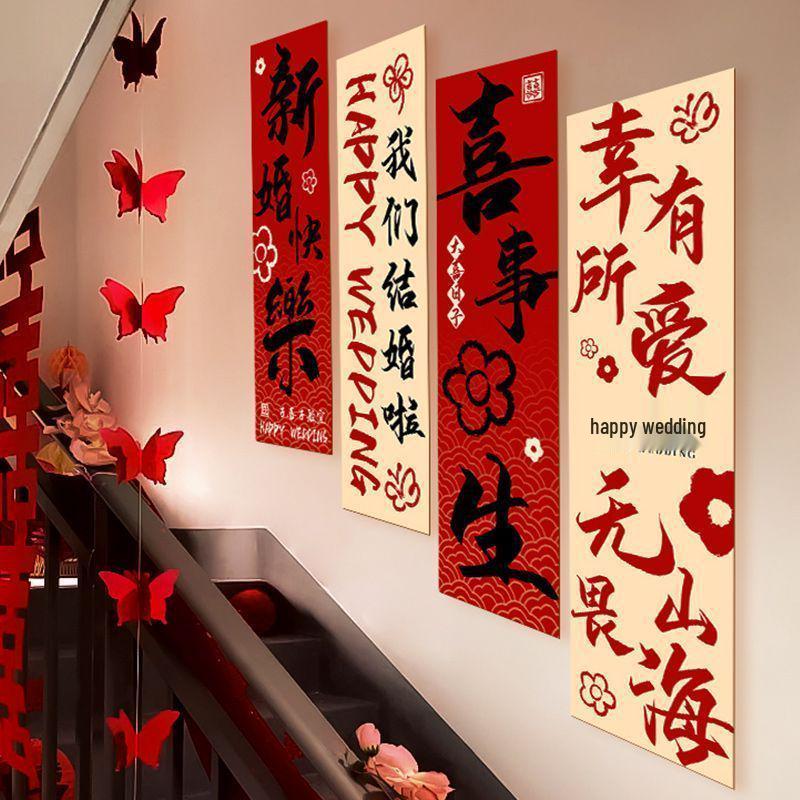 新婚快樂
HAPPY WEDDING
HAPPY WEPPING
我们结婚啦
囍
喜事
大喜日子
生
幸有
所爱
happy wedding
无山
畏海